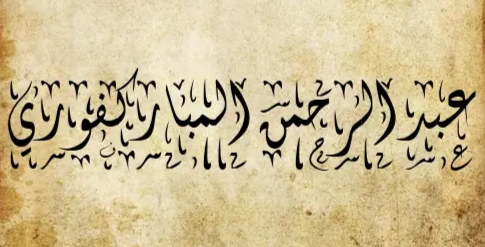 عبد الرحمن المباركفوري